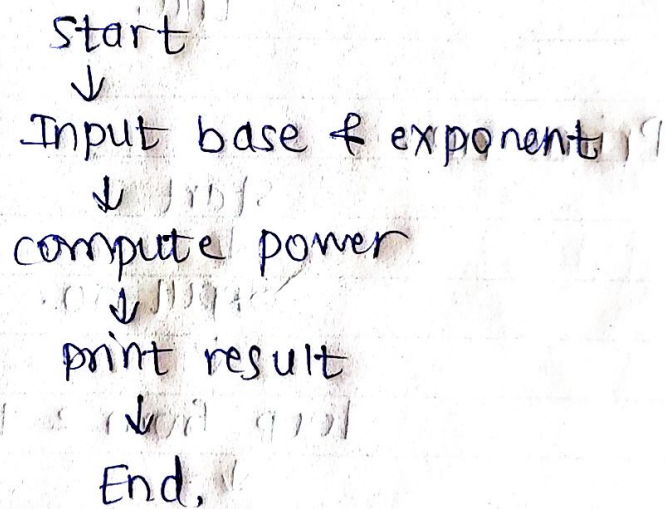 Start
↓
Input base & exponent
↓
compute power
↓
print result
↓
End.